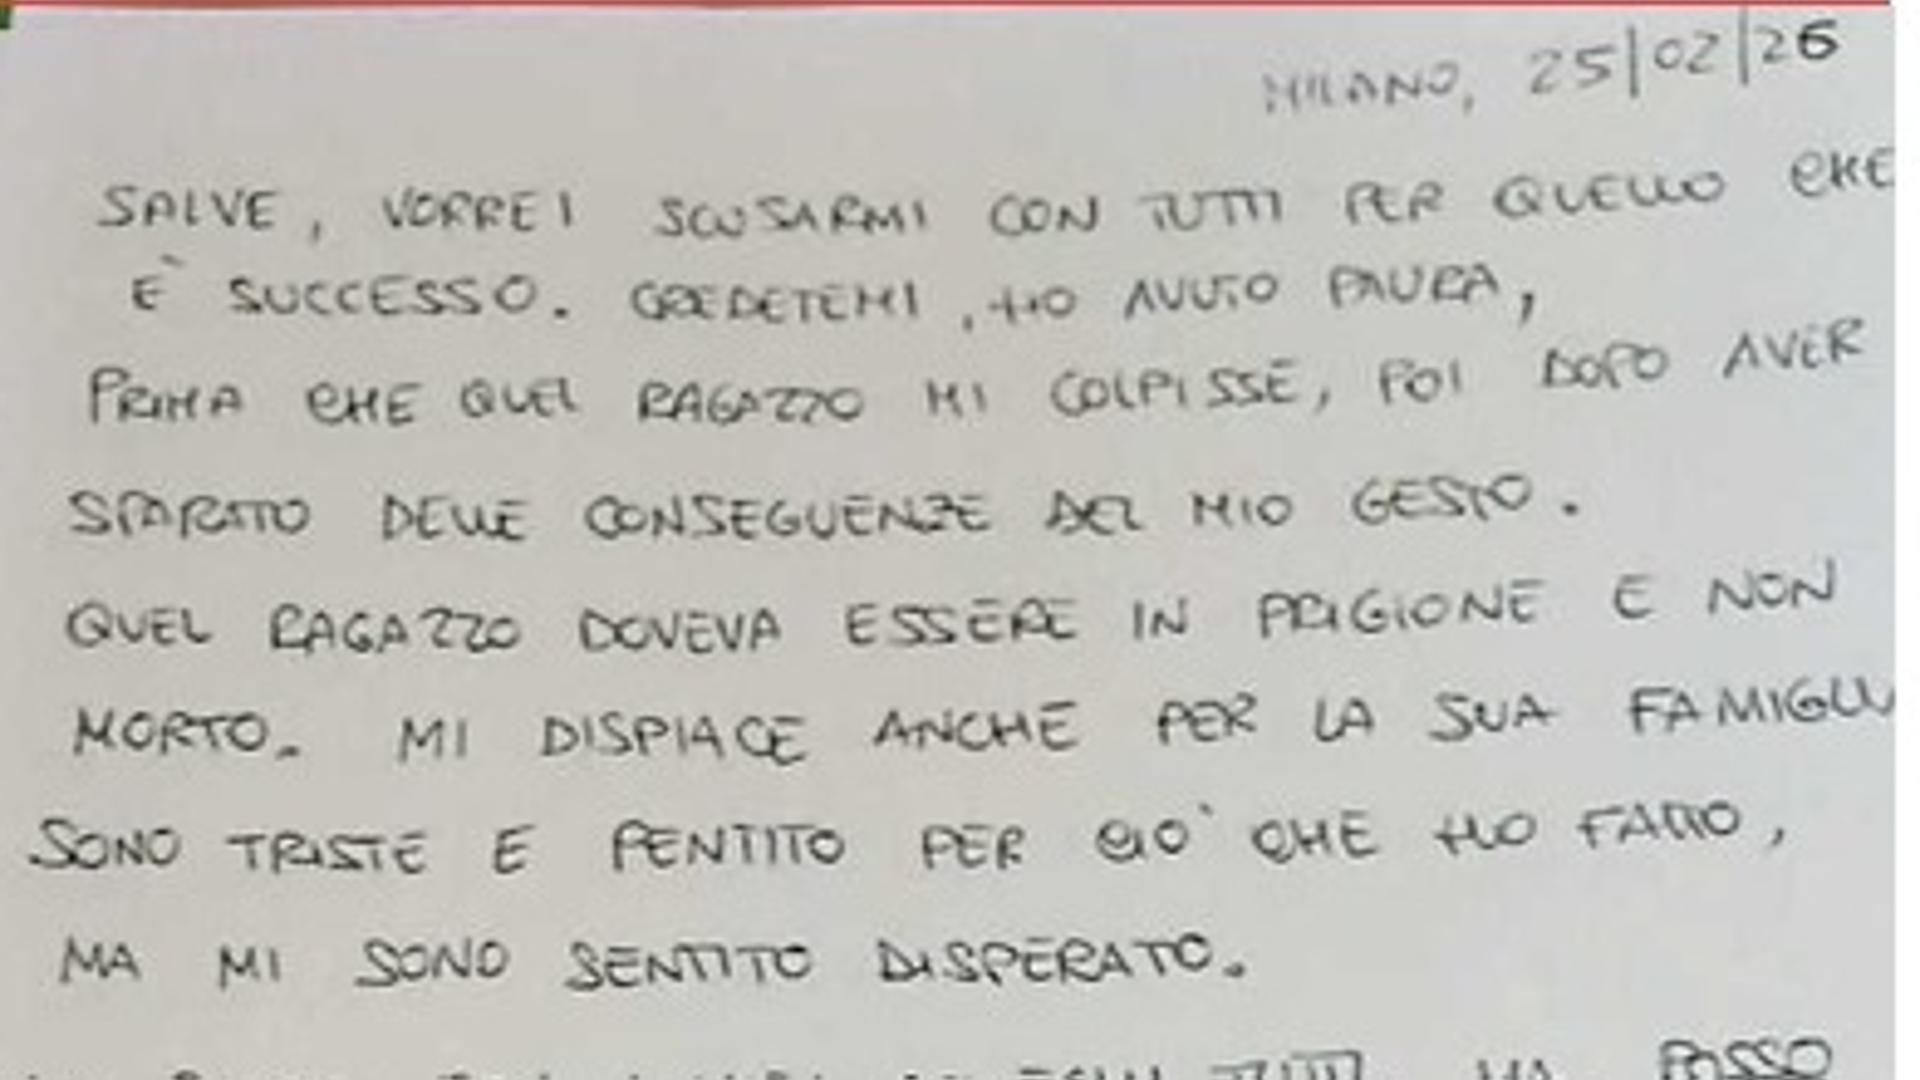 MILANO, 25/02/26
SALVE, VORREI SCUSARMI CON TUTTI PER QUELLO CHE
E` SUCCESSO. CREDETEMI, HO AVUTO PAURA,
PRIMA CHE QUEL RAGAZZO MI COLPISSE, POI DOPO AVER
SPARATO DELLE CONSEGUENZE DEL MIO GESTO.
QUEL RAGAZZO DOVEVA ESSERE IN PRIGIONE E NON
MORTO. MI DISPIACE ANCHE PER LA SUA
SONO TRISTE E PENTITO PER CIO` CHE HO FATTO,
MA MI SONO SENTITO DISPERATO.
TUTTI MA POSSO